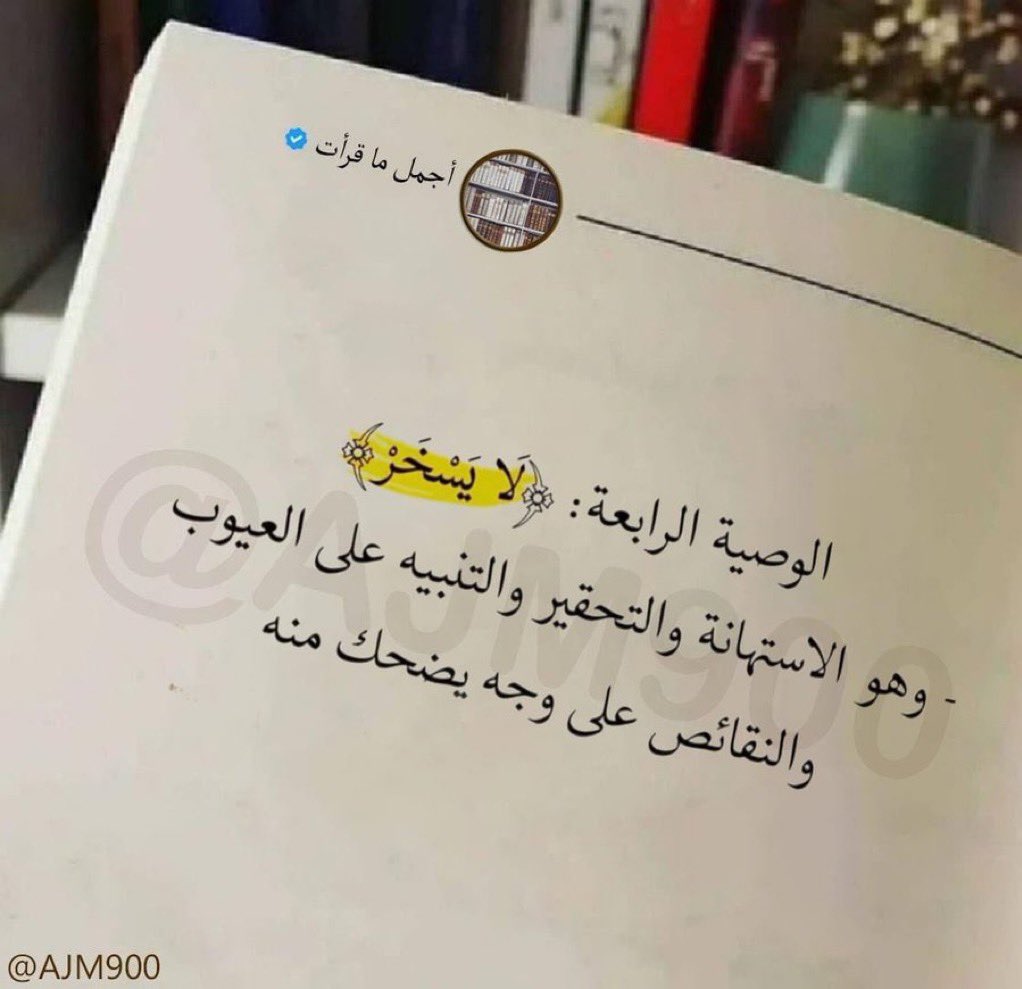 أجمل ما قرأت
الوصية الرابعة: ﴿لَا يَسْخَرْ﴾
- وهو الاستهانة والتحقير والتنبيه على العيوب
والنقائص على وجه يضحك منه
@AJM900
@AJM900